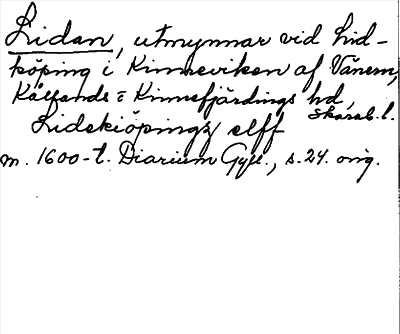 Lidan, utmynnar vid Lid-
köping i Kinneviken af Vänern,
Kållands = Kinnefjärdings hd,
Skarab. l.
Lidekiöpings elff
m. 1600-t. Diarium Gyll., s. 24. orig.